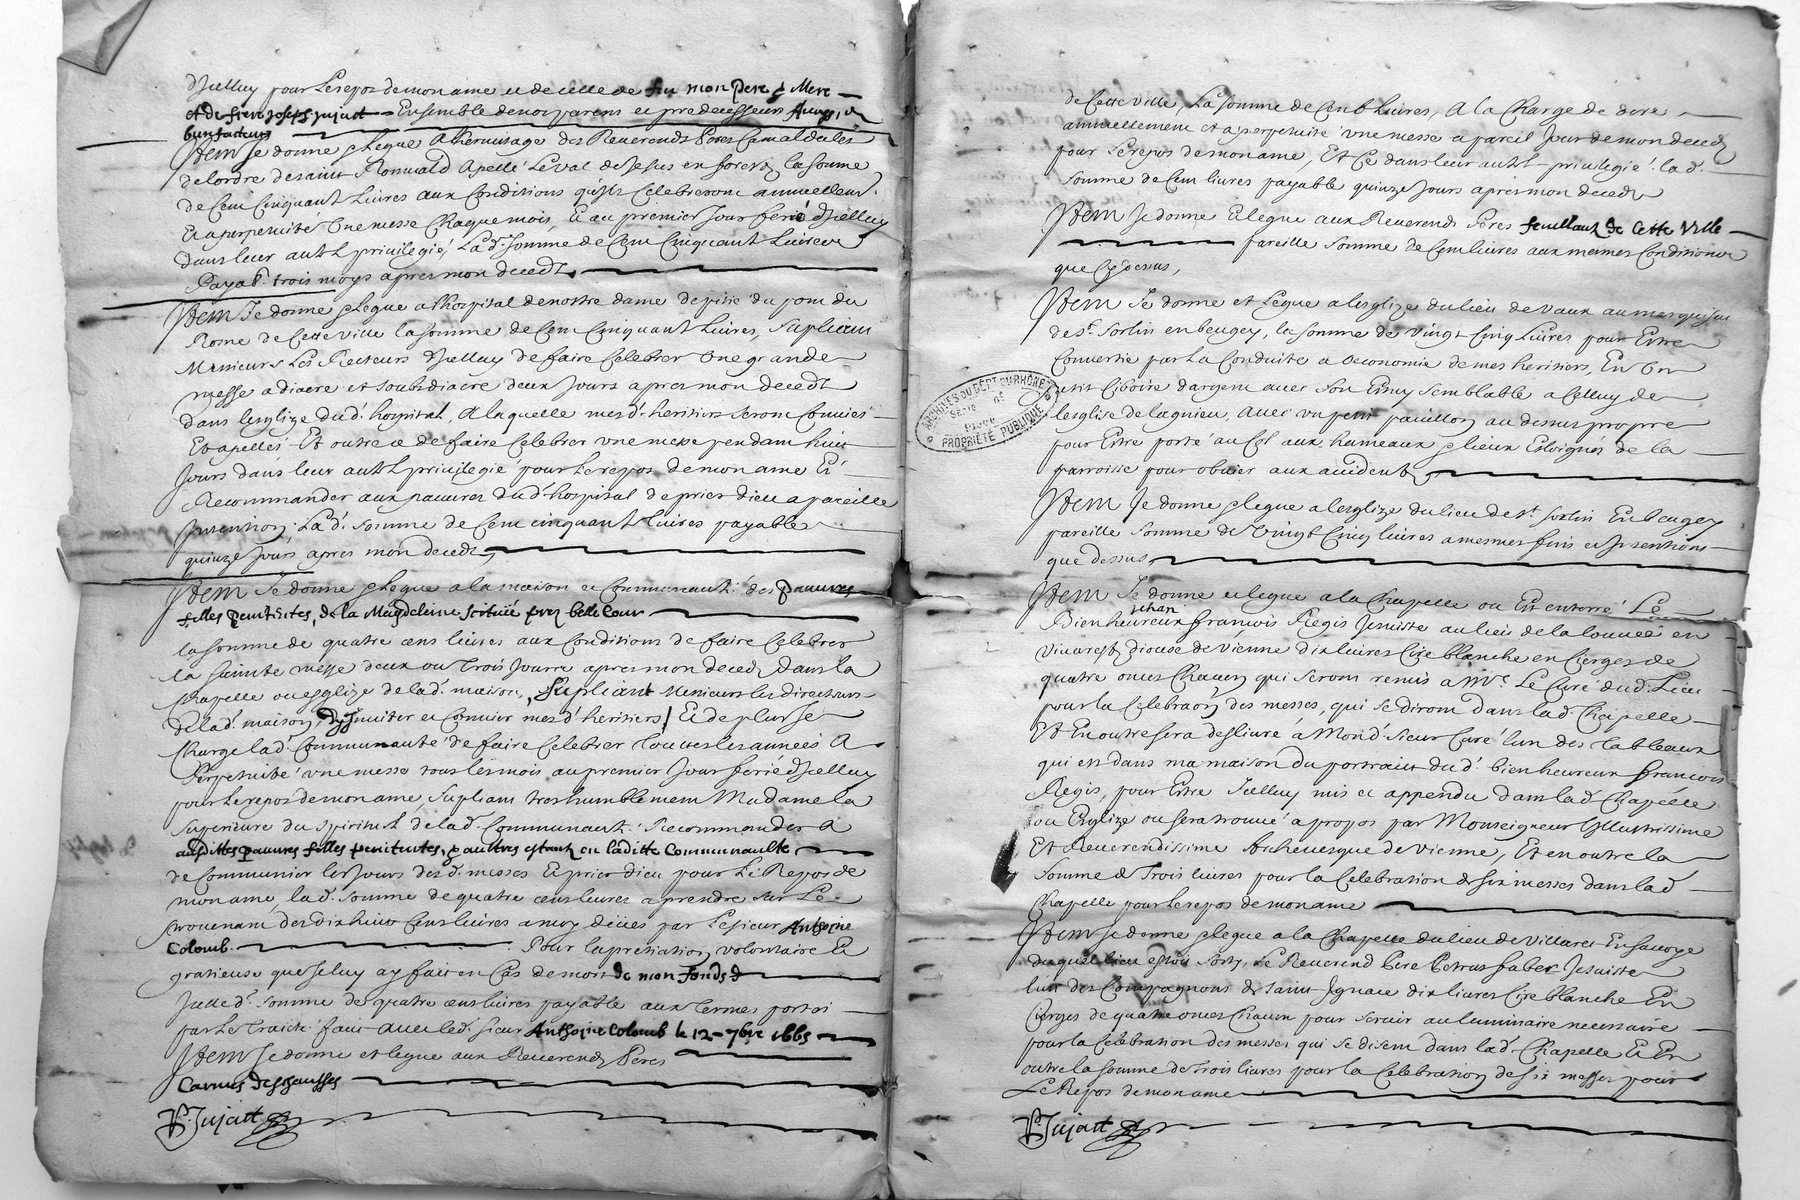 d'Icelluy pour Le repos de mon ame et de celle de feu mon Pere & Mere
et de frere Joseph Jujatt Ensemble de nos parens et predecesseurs Amys, et
bienfacteurs
Item Je donne & legue A l'hermitage des Reverends Peres Camaldules
de l'ordre de saint Romuald Apellé Le val de Jesus en forest la somme
de Cent Cinquant Livres aux Conditions qu'ils Celebreront annuellem.t
Et a perpetuité Une messe Chaque mois, Et au premier Jour ferié d'Icelluy
dans leur autel privilegié, La d. somme de Cent Cinquant Livres
Payab. trois moys apres mon decedz
Item Je donne & legue a l'hospital de nostre dame de pitié du pont du
Rosne de Cette ville la somme de Cent Cinquant Livres, Supliant
Messieurs Les Recteurs d'Icelluy de faire Celebrer Une grande
messe a diacre et soubsdiacre deux Jours apres mon decedz
dans l'esglize du d. hospital, A laquelle mes d. heritiers seront Conviés
Et apellés Et outre ce de faire Celebrer une messe pendant huit
Jours dans leur autel privilegié pour le repos de mon ame Et
Recommander aux pauvres du d. hospital de prier dieu a pareille
Intention La d. somme de Cent cinquant livres payable
quinze Jours apres mon decedz,
Item Je donne & legue a la maison et Communauté des Pauvres
filles penitentes, de la Magdeleine scituée prez belle Cour
la somme de quatre cens livres aux Conditions de faire Celebrer
la sainte messe deux ou Trois Jours apres mon decedz dans la
Chapelle ou esglize de la d. maison, Supliant Messieurs les directeurs
de la d. maison, d'y Inviter et Convier mes d. heritiers, Et de plus Je
Charge la d. Communauté de faire Celebrer Touttes les années A
Perpetuité une messe tous les mois au premier Jour ferié d'Icelluy
pour le repos de mon ame, Supliant tres humblement Madame la
superieure du spirituel de la d. Communaut. Recommander A
ausdittes pauvres filles penitentes, & aultres estantz en laditte Communaulté
de Communier les Jours des d. messes Et prier dieu pour Le Repos de
mon ame, la d. somme de quatre cens livres a prendre sur Le
provenant des dix huit Cens livres a moy deues par Le sieur Anthoine
Colomb. Pour la pretiation volontaire Et
gratieuse que Je luy ay fait en Cas de mort de mon fondz
Icelle d. somme de quatre cens livres payable aux termes portés
par Le Traicté fait avec led. sieur Anthoine Colomb le 12 - 7bre 1665
Item Je donne et legue aux Reverendz Peres
Carmes deschausses
P. Jujatt
de Cette ville, La somme de Cent Livres, A la Charge de dire
annuellement et a perpetuité une messe a pareil Jour de mon decedz
pour le repos de mon ame, Et Ce dans leur autel privilegié la d.
somme de Cent livres payable quinze Jours apres mon decedz
Item Je donne Et legue aux Reverends Peres feuillantz de Cette Ville
pareille somme de Cent livres aux mesmes Conditions
que Cy dessus,
Item Je donne et Legue a l'esglize du lieu de Vaux au marquisat
de St. Sorlin en beugey, la somme de vingt Cinq Livres pour Estre
Convertie par La Conduite & oeconomie de mes heritiers, En Un
petit Ciboire d'argent avec son Estuy semblable a Celluy de
l'esglise de lagnieu, avec un petit pavillon au dessus propre
pour Estre porté au Col aux hameaux & lieux Esloignés de la
parroisse pour obvier aux accidents,
Item Je donne & legue a l'esglize du lieu de St. Sorlin En beugey
pareille somme de Vingt Cinq livres a mesmes fins et Intentions
que dessus,
Item Je donne et legue a la Chapelle ou Est enterré Le
Jehan
Bienheureux francois Regis Jesuiste au lieu de la louvée en
vivarestz diocese de vienne dix livres Cire blanche en Cierges de
quatre onces Chacun qui seront remis a Mr. Le Curé du d. Lieu
pour la Celebraon des messes, qui se diront dans la d. Chapelle
Et En outre sera deslivré à Mond. Sieur Curé l'un des tableaux
qui est dans ma maison du portrait du d. bienheureux francois
Regis, pour Estre Icelluy mis et appendu dans la d. Chapelle
ou Esglize ou sera trouvé a propos par Monseigneur Illustrissime
Et Reverendissime Archevesque de Vienne, Et en outre la
somme de Trois livres pour la Celebration de six messes dans la d.
Chapelle pour le repos de mon ame
Item Je donne & legue a la Chapelle du lieu de Villaret En savoye
duquel lieu estoit sorty, Le Reverend Pere Petrus faber Jesuiste
l'un des Compagnons de saint Ignace dix livres Cire blanche En
Cierges de quatre onces Chacun pour servir au luminaire necessaire
pour la Celebration des messes qui se disent dans la d. Chapelle Et En
outre la somme de trois livres pour la Celebration de six messes pour
Le Repos de mon ame
P. Jujatt
ARCHIVES DU DÉPT DU RHÔNE
Série
Pièce
PROPRIÉTÉ PUBLIQUE